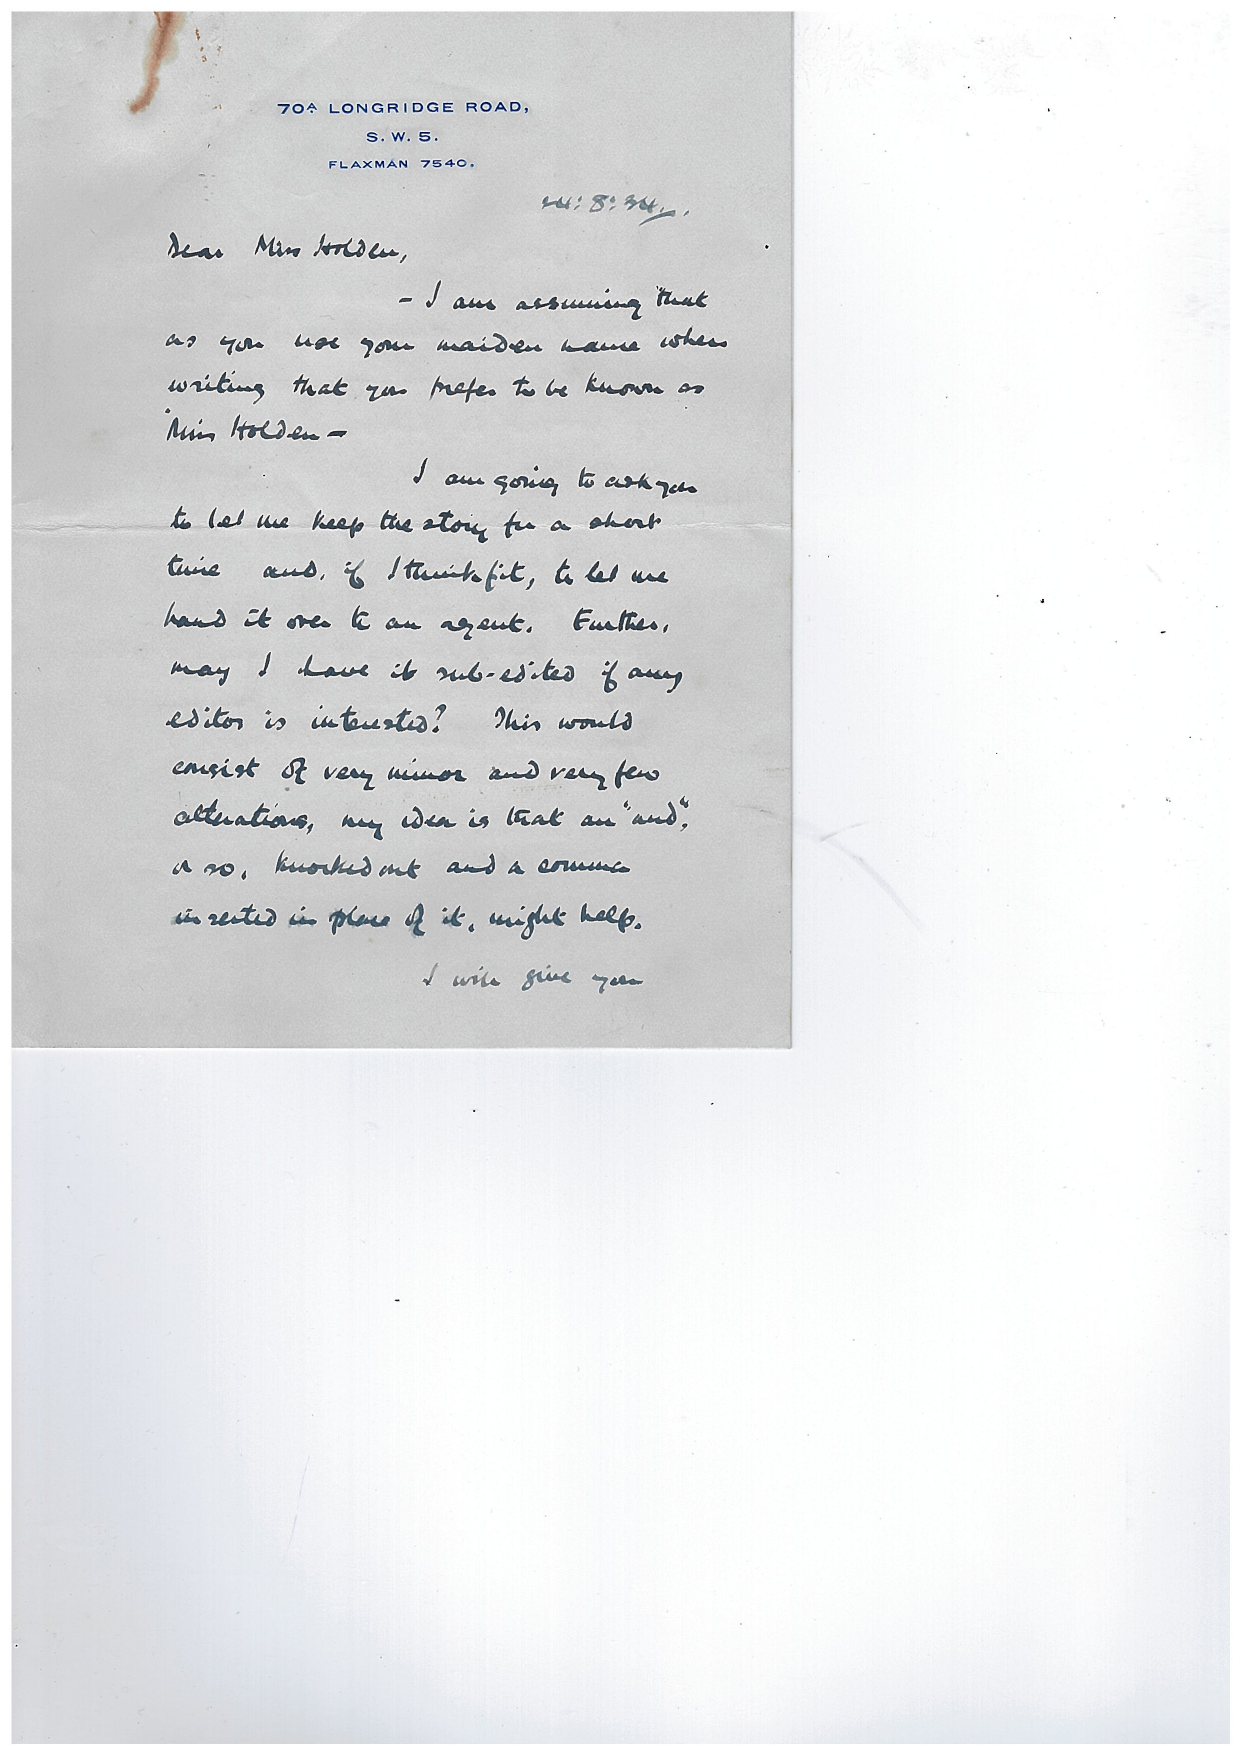 70A LONGRIDGE ROAD,
S. W. 5.
FLAXMAN 7540.
24: 8: 34.
Dear Miss Holden,
– I am assuming that
as you use your maiden name when
writing that you prefer to be known as
Miss Holden –
I am going to ask you
to let me keep the story for a short
time and, if I think fit, to let me
hand it over to an agent. Further,
may I have it sub-edited if any
editor is interested? This would
consist of very minor and very few
alterations, my idea is that an "and",
or so, knocked out and a comma
inserted in place of it, might help.
I will give you